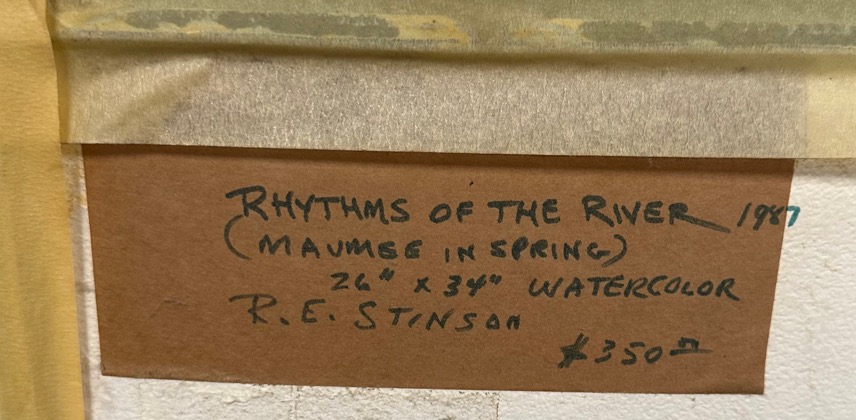 RHYTHMS OF THE RIVER 1987
(MAUMEE IN SPRING)
26" x 34" WATERCOLOR
R. E. STINSON
$350.00